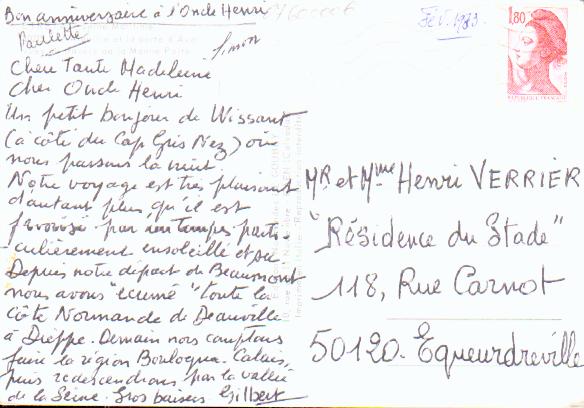 Bon anniversaire à l'Oncle Henri
Paulette
Simon
Fév. 1983
1,80
Chère Tante Madeleine
Cher Oncle Henri
Un petit bonjour de Wissant
(à côté du Cap Gris Nez) où
nous passons la nuit.
Notre voyage est très plaisant
d'autant plus qu'il est
favorisé par un temps parti-
culièrement ensoleillé et
Depuis notre départ de Beaumont
nous avons "écumé" toute la
côte Normande de Deauville
à Dieppe. Demain nous comptons
faire la région Boulogne. Calais,
puis redescendrons par la vallée
de la Seine. Gros baisers Gilbert
MR et Mme Henri VERRIER
"Résidence du Stade"
118, Rue Carnot
50120. Equeurdreville